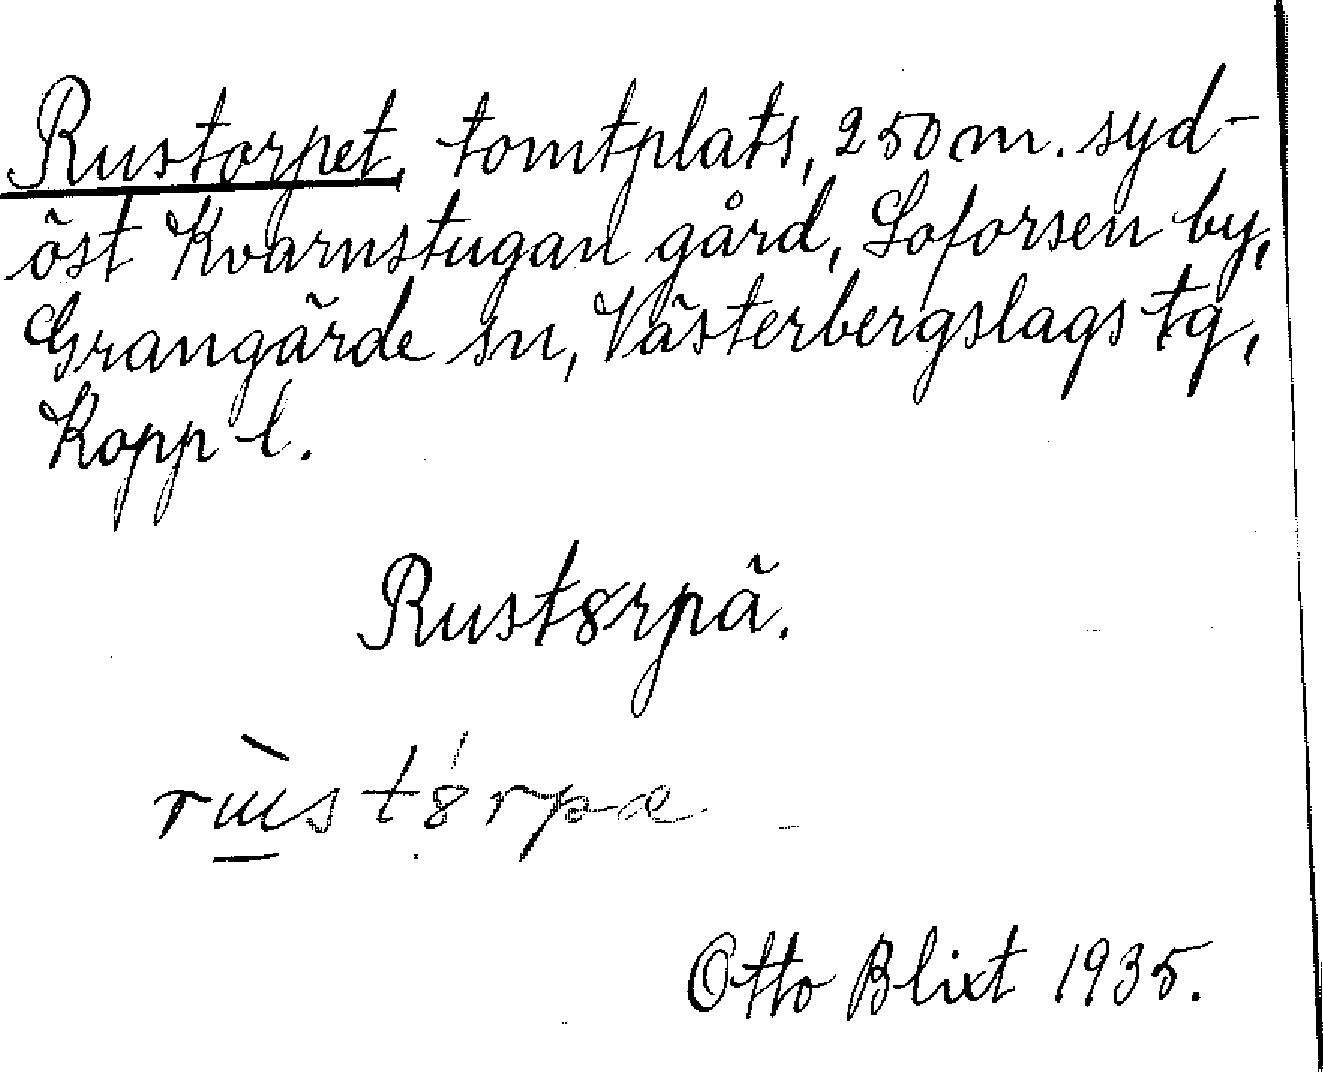 Rustorpet, tomtplats, 250 m. syd-
öst Kvarnstugan gård, Loforsen by,
Grangärde sn, Västerbergslags tg,
Kopp l.
Rust8rpä.
Otto Blixt 1935.